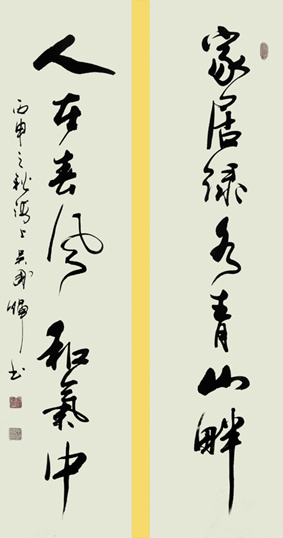 家居绿水青山畔
人在春风和气中
丙申之秋海上吴国归书